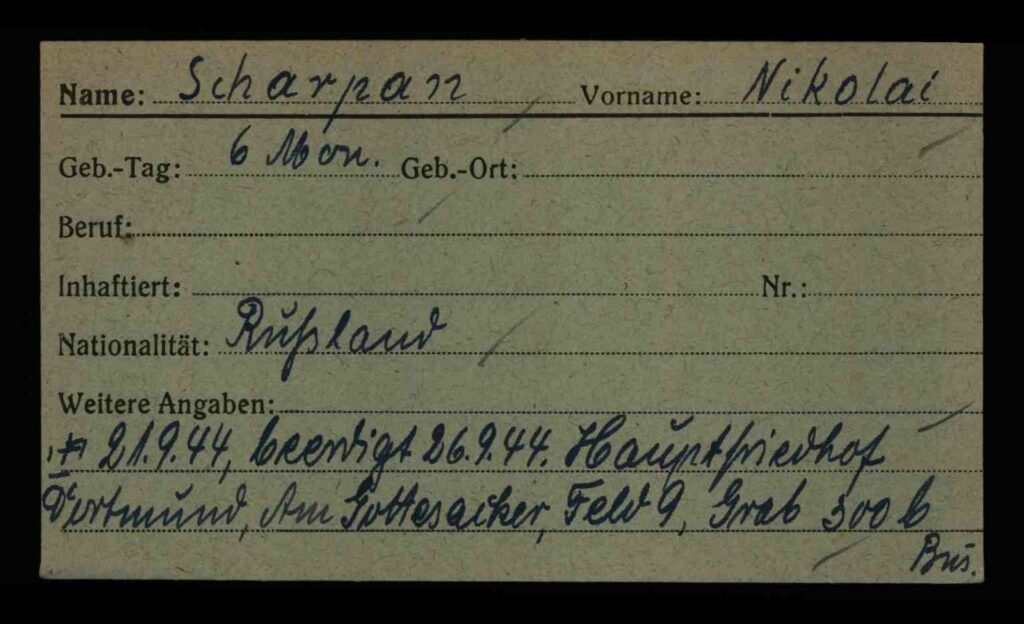 Name: Scharpan Vorname: Nikolai
Geb.-Tag: 6 Mon. Geb.-Ort:
Beruf:
Inhaftiert: Nr.:
Nationalität: Rußland
Weitere Angaben:
21.9.44, beerdigt 26.9.44. Hauptfriedhof
Dortmund, Am Gottesacker, Feld 9, Grab 300 b